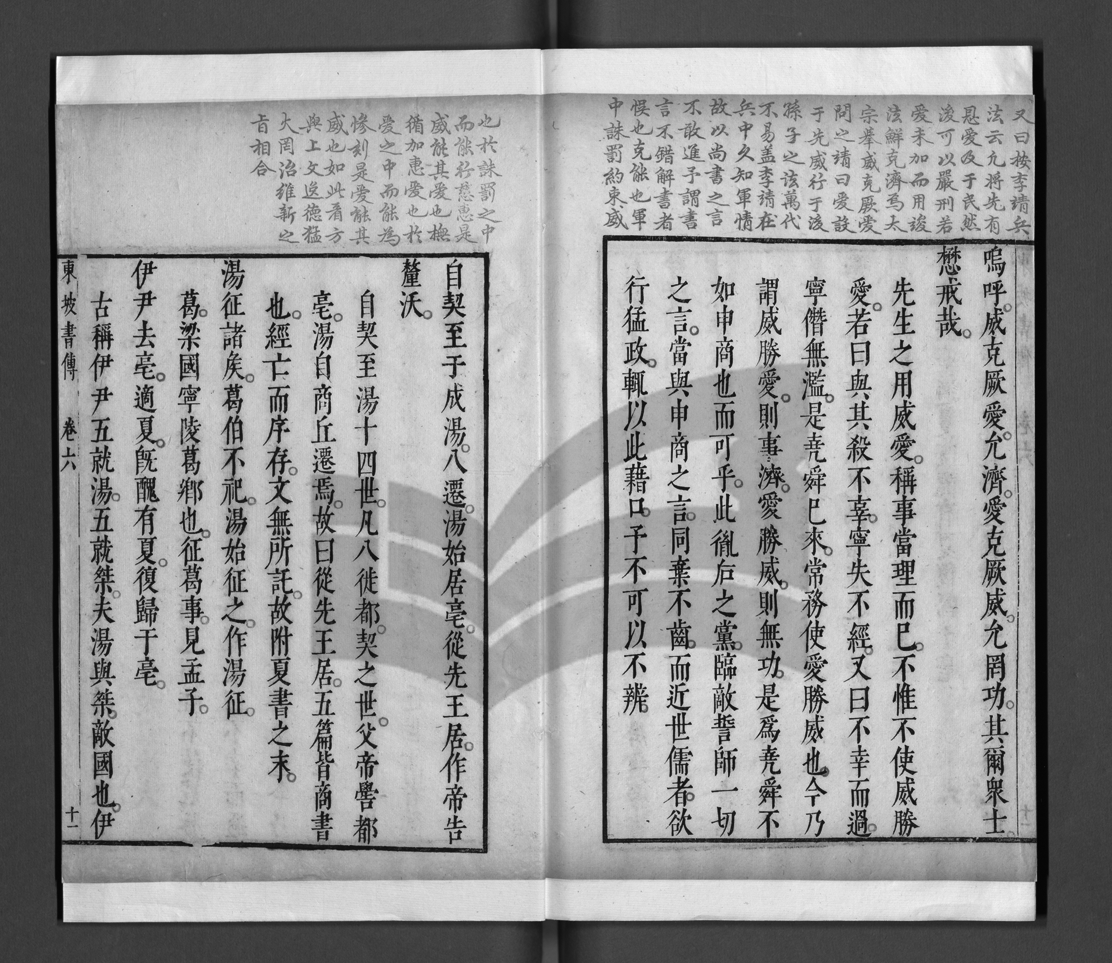 又曰按李靖兵
法云凡將先有
恩愛及于民然
後可以嚴刑若
愛未加而用峻
法鮮克濟焉太
宗舉威克厥愛
問之靖曰愛設
于先威行于後
孫子之該萬代
不易盖李靖在
兵中久知軍情
故以尚書之言
不敢進予謂書
言不錯解書者
悮也克能也軍
中誅罰約束威
嗚呼。威克厥愛。允濟。愛克厥威。允罔功。其爾衆士。
懋戒哉。
先生之用威愛。稱事當理而已。不惟不使威勝
愛。若曰與其殺不辜。寧失不經。又曰不幸而過。
寧僭無濫。是堯舜已來。常務使愛勝威也。今乃
謂威勝愛。則事濟。愛勝威。則無功。是爲堯舜不
如申商也而可乎。此胤后之黨。臨敵誓師一切
之言。當與申商之言。同棄不齒。而近世儒者。欲
行猛政。輒以此藉口。予不可以不辨。
也於誅罰之中
而能行慈惠是
威能其愛也撫
循加惠愛也於
愛之中而能為
慘刻是愛能其
威也如此看方
與上文逸德猛
大罔治維新之
旨相合
自契至于成湯。八遷。湯始居亳。從先王居。作帝告
釐沃。
自契至湯十四世。凡八徙都。契之世。父帝嚳都
亳。湯自商丘遷焉。故曰從先王居。五篇皆商書
也。經亡而序存。文無所託。故附夏書之末。
湯征諸矦。葛伯不祀。湯始征之。作湯征。
葛。梁國寧陵葛鄉也。征葛事。見孟子。
伊尹去亳。適夏。旣醜有夏。復歸于亳。
古稱伊尹五就湯。五就桀。夫湯與桀。敵國也。伊
東坡書傳 卷六 十一